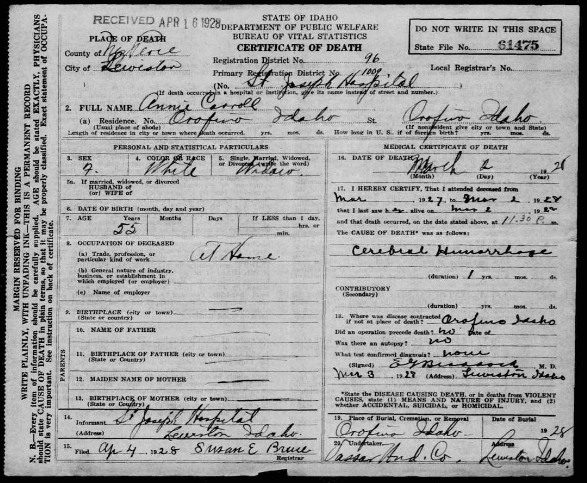 RECEIVED APR 16 1928
STATE OF IDAHO
DEPARTMENT OF PUBLIC WELFARE
BUREAU OF VITAL STATISTICS
CERTIFICATE OF DEATH
DO NOT WRITE IN THIS SPACE
State File No. 61475
PLACE OF DEATH
County of Nez Perce
City of Lewiston
Registration District No. 96
Primary Registration District No. 1009
Local Registrar's No.
(No. St. Joseph Hospital)
(If death occurred in a hospital or institution, give its name instead of street and number.)
2. FULL NAME Annie Carroll
(a) Residence. No. Orofino Idaho St. Orofino Idaho
(Usual place of abode) (If nonresident give city or town and State)
Length of residence in city or town where death occurred yrs. mos. ds. How long in U. S., if of foreign birth? yrs. mos. ds.
PERSONAL AND STATISTICAL PARTICULARS
3. SEX F. 4. COLOR OR RACE White 5. Single, Married, Widowed, or Divorced (write the word) Widow
5a. If married, widowed, or divorced
HUSBAND of
(or) WIFE of
6. DATE OF BIRTH (month, day and year)
7. AGE Years 55 Months Days IF LESS than 1 day, hrs. or min.
8. OCCUPATION OF DECEASED
(a) Trade, profession, or particular kind of work At Home
(b) General nature of industry, business, or establishment in which employed (or employer)
(c) Name of employer
9. BIRTHPLACE (city or town)
(State or country)
PARENTS
10. NAME OF FATHER
11. BIRTHPLACE OF FATHER (city or town)
(State or country)
12. MAIDEN NAME OF MOTHER
13. BIRTHPLACE OF MOTHER (city or town)
(State or country)
14. Informant St Joseph Hospital
(Address) Lewiston Idaho.
15. Filed Apr 4, 1928 Susan E Bruce
Registrar
MEDICAL CERTIFICATE OF DEATH
16. DATE OF DEATH March 2 1928
(Month) (Day) (Year)
17. I HEREBY CERTIFY, That I attended deceased from
Mar 1927, to Mar 2 1928
that I last saw her alive on Mar 2 1928
and that death occurred, on the date stated above, at 11:30 P m.
The CAUSE OF DEATH* was as follows:
Cerebral Hemorrhage
(duration) 1 yrs. mos. ds.
CONTRIBUTORY
(Secondary)
(duration) yrs. mos. ds.
18. Where was disease contracted if not at place of death? Orofino Idaho
Did an operation precede death? no Date of
Was there an autopsy? no
What test confirmed diagnosis? none
(Signed) M. D.
Mar 3 1928 (Address) Lewiston Idaho
*State the DISEASE CAUSING DEATH, or in deaths from VIOLENT CAUSES, state (1) MEANS AND NATURE OF INJURY, and (2) whether ACCIDENTAL, SUICIDAL, or HOMICIDAL.
19. Place of Burial, Cremation, or Removal Date of Burial
Orofino Idaho 1928
20. Undertaker Address
Vassar Und. Co. Lewiston Idaho.
MARGIN RESERVED FOR BINDING
WRITE PLAINLY, WITH UNFADING INK—THIS IS A PERMANENT RECORD
N. B.—Every item of information should be carefully supplied. AGE should be stated EXACTLY, PHYSICIANS
should state CAUSE OF DEATH in plain terms, so that it may be properly classified. Exact statement of OCCUPATION
is very important. See instruction on back of certificate.